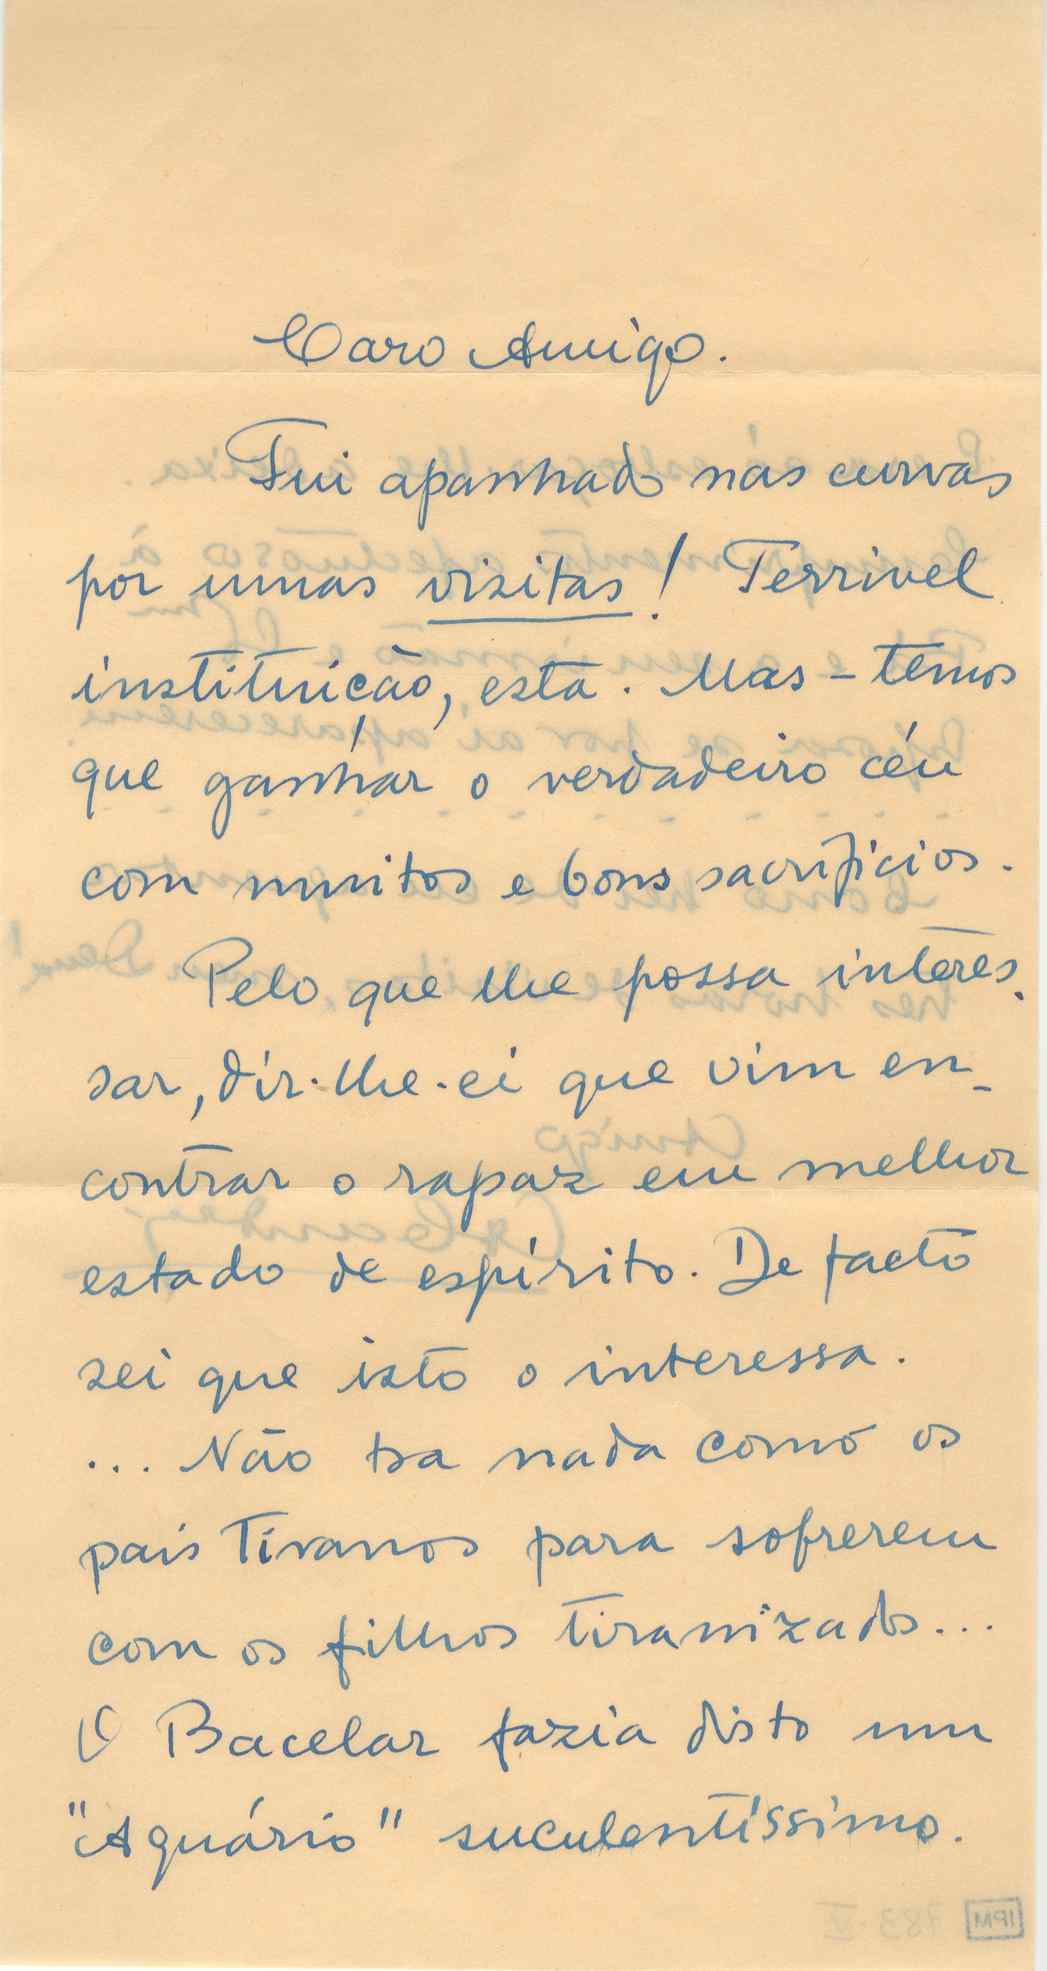 Caro Amigo.
Fui apanhado nas curvas
por umas visitas! Terrivel
instituição, esta. Mas - temos
que ganhar o verdadeiro céu
com muitos e bons sacrifícios.
Pelo que lhe possa interes-
sar, dir-lhe-ei que vim en-
contrar o rapaz em melhor
estado de espírito. De facto
sei que isto o interessa.
... Não há nada como os
pais Tiranos para sofrerem
com os filhos tiranizados...
O Bacelar fazia disto um
"Aquário" suculentíssimo.
IPM 783-V